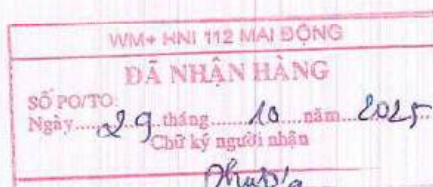 WM+ HNI 112 MAI ĐỘNG
ĐÃ NHẬN HÀNG
SỐ PO/TO:
Ngày....29..tháng.......10....năm...2025
Chữ ký người nhận